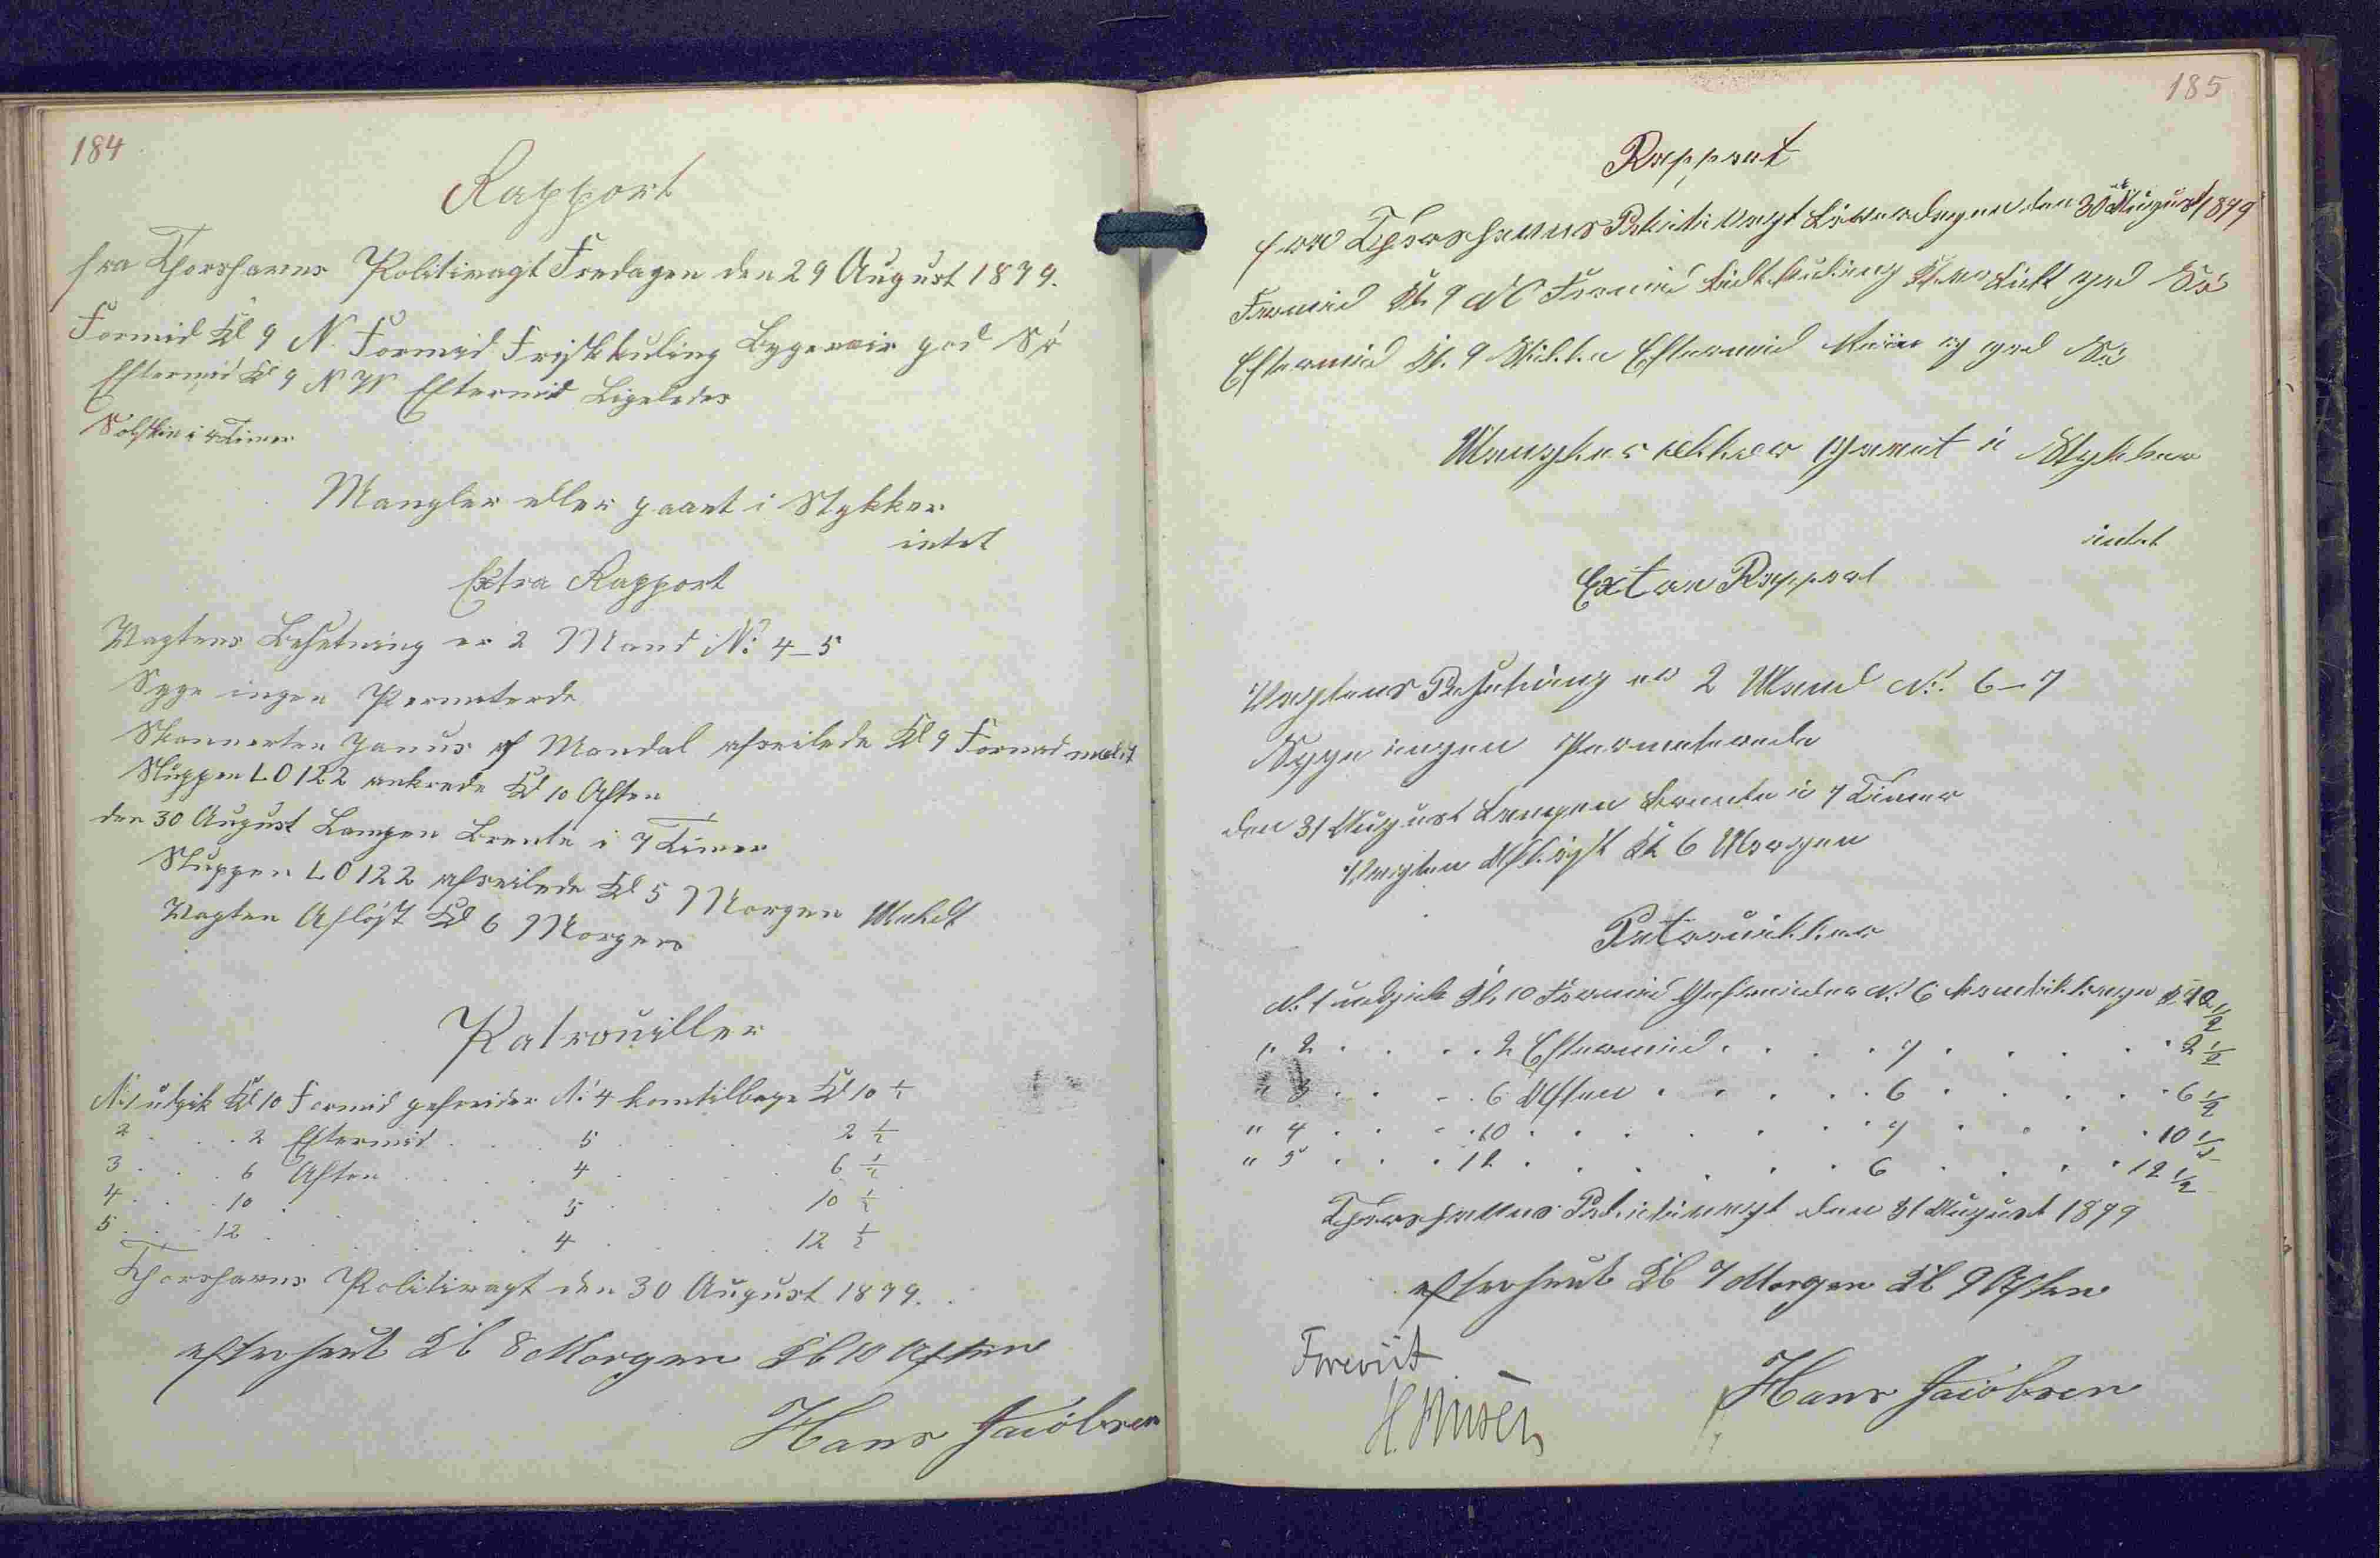 184
Rapport
fra Thorshavns Politivagt Fredagen den 29 August 1879.
Formid Kl 9 N. Formid Friskkuling Bygeveir god Sö
Eftermid Kl 9 NW Eftermid Ligeledes
Solskin i 4 Timer
Mangler eller gaaet i Stykker
intet
Extra Rapport
Vagtens Besetning er 2 Mand No 4_5
Syge ingen Permeterede
Skonnerten Janus af Mandal afseilede Kl 9 Formid
Sluppen LO 122 ankrede Kl 10 Aften
den 30 August Lampen Brente i 7 Timer
Sluppen LO 122 afseilede Kl 5 Morgen
Vagten Aflöst Kl 6 Morgen
Patrouiller
No 1 udgik Kl 10 Formid gefreider No 4 kom tilbage Kl 10 1/2
2 . . . 2 Eftermid . . . 5 . . . 2 1/2
3 . . . 6 Aften . . . 4 . . . 6 1/2
4 . . . 10 . . . 5 . . . 10 1/2
5 . . . 12 . . . 4 . . . 12 1/2
Thorshavns Politivagt den 30 August 1879.
Kl 8 Morgen Kl 10 Aften
Hans Jacobsen
185
Rapport
fra Thorshavns Politivagt Löverdagen den 30 August 1879
Formid Kl. 9 N Formid Lidt kuling god Sö
Eftermid Kl. 9 Stille Eftermid og god Sö
Mangler eller gaaet i Stykker
intet
Extra Rapport
Vagtens Besetning er 2 Mand No. 6_7
Syge ingen Permeterede
den 31 August Lampen Brente i 7 Timer
Vagten Aflöst Kl 6 Morgen
Patrouiller
No 1 udgik Kl. 10 Formid Gefreider No 6 kom tilbage Kl 10 1/2
" 2 . . . 2 Eftermid . . . 7 . . . 2 1/2
" 3 . . . 6 Aften . . . 6 . . . 6 1/2
" 4 . . . 10 . . . 7 . . . 10 1/2
" 5 . . . 12 . . . 6 . . . 12 1/2
Thorshavns Politivagt den 31 August 1879
Kl 7 Morgen Kl 9 Aften
Hans Jacobsen